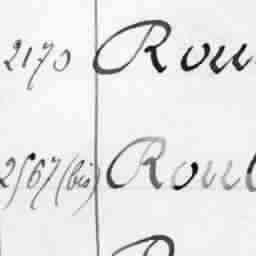 2170 Rou
2567 (bis) Roul